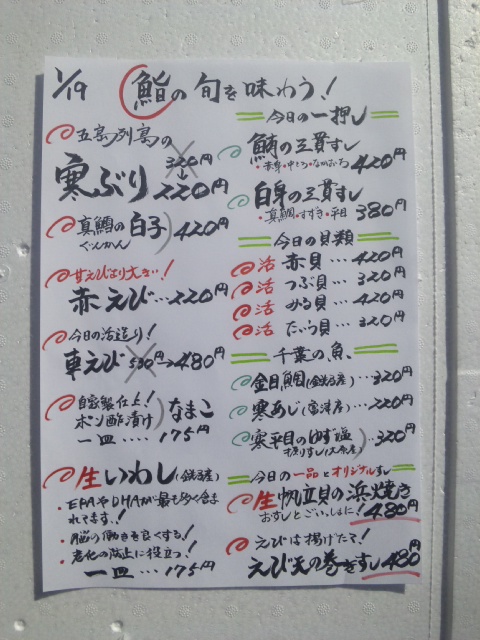 1/19 鮨の旬を味わう!
五島列島の
寒ぶり 320円→220円
真鯛の白子 420円
ぐんかん
甘えびより大きい!
赤えび…220円
今日の活造り!
車えび 530円→480円
自家製仕上!
ポン酢漬け なまこ
一皿…. 175円
生いわし(銚子産)
・EPAやDHAが最も多く含まれてます!
・脳の働きを良くする!
・老化の防止に役立つ!
一皿…175円
今日の一押し
鮪の三貫すし
・赤身・中とろ・なかおち 420円
白身の三貫すし
・真鯛・すずき・平目 380円
今日の貝類
活 赤貝…420円
活 つぶ貝…320円
活 みる貝…420円
活 たいら貝…320円
千葉の魚、
金目鯛(銚子産)…320円
寒あじ(富津産)…220円
寒平目のゆず塩
握りすし(大原産) …320円
今日の一品とオリジナルすし
生帆立貝の浜焼き
おすしとごいっしょに! 480円
えびは揚げたて!
えび天の巻きずし 480円